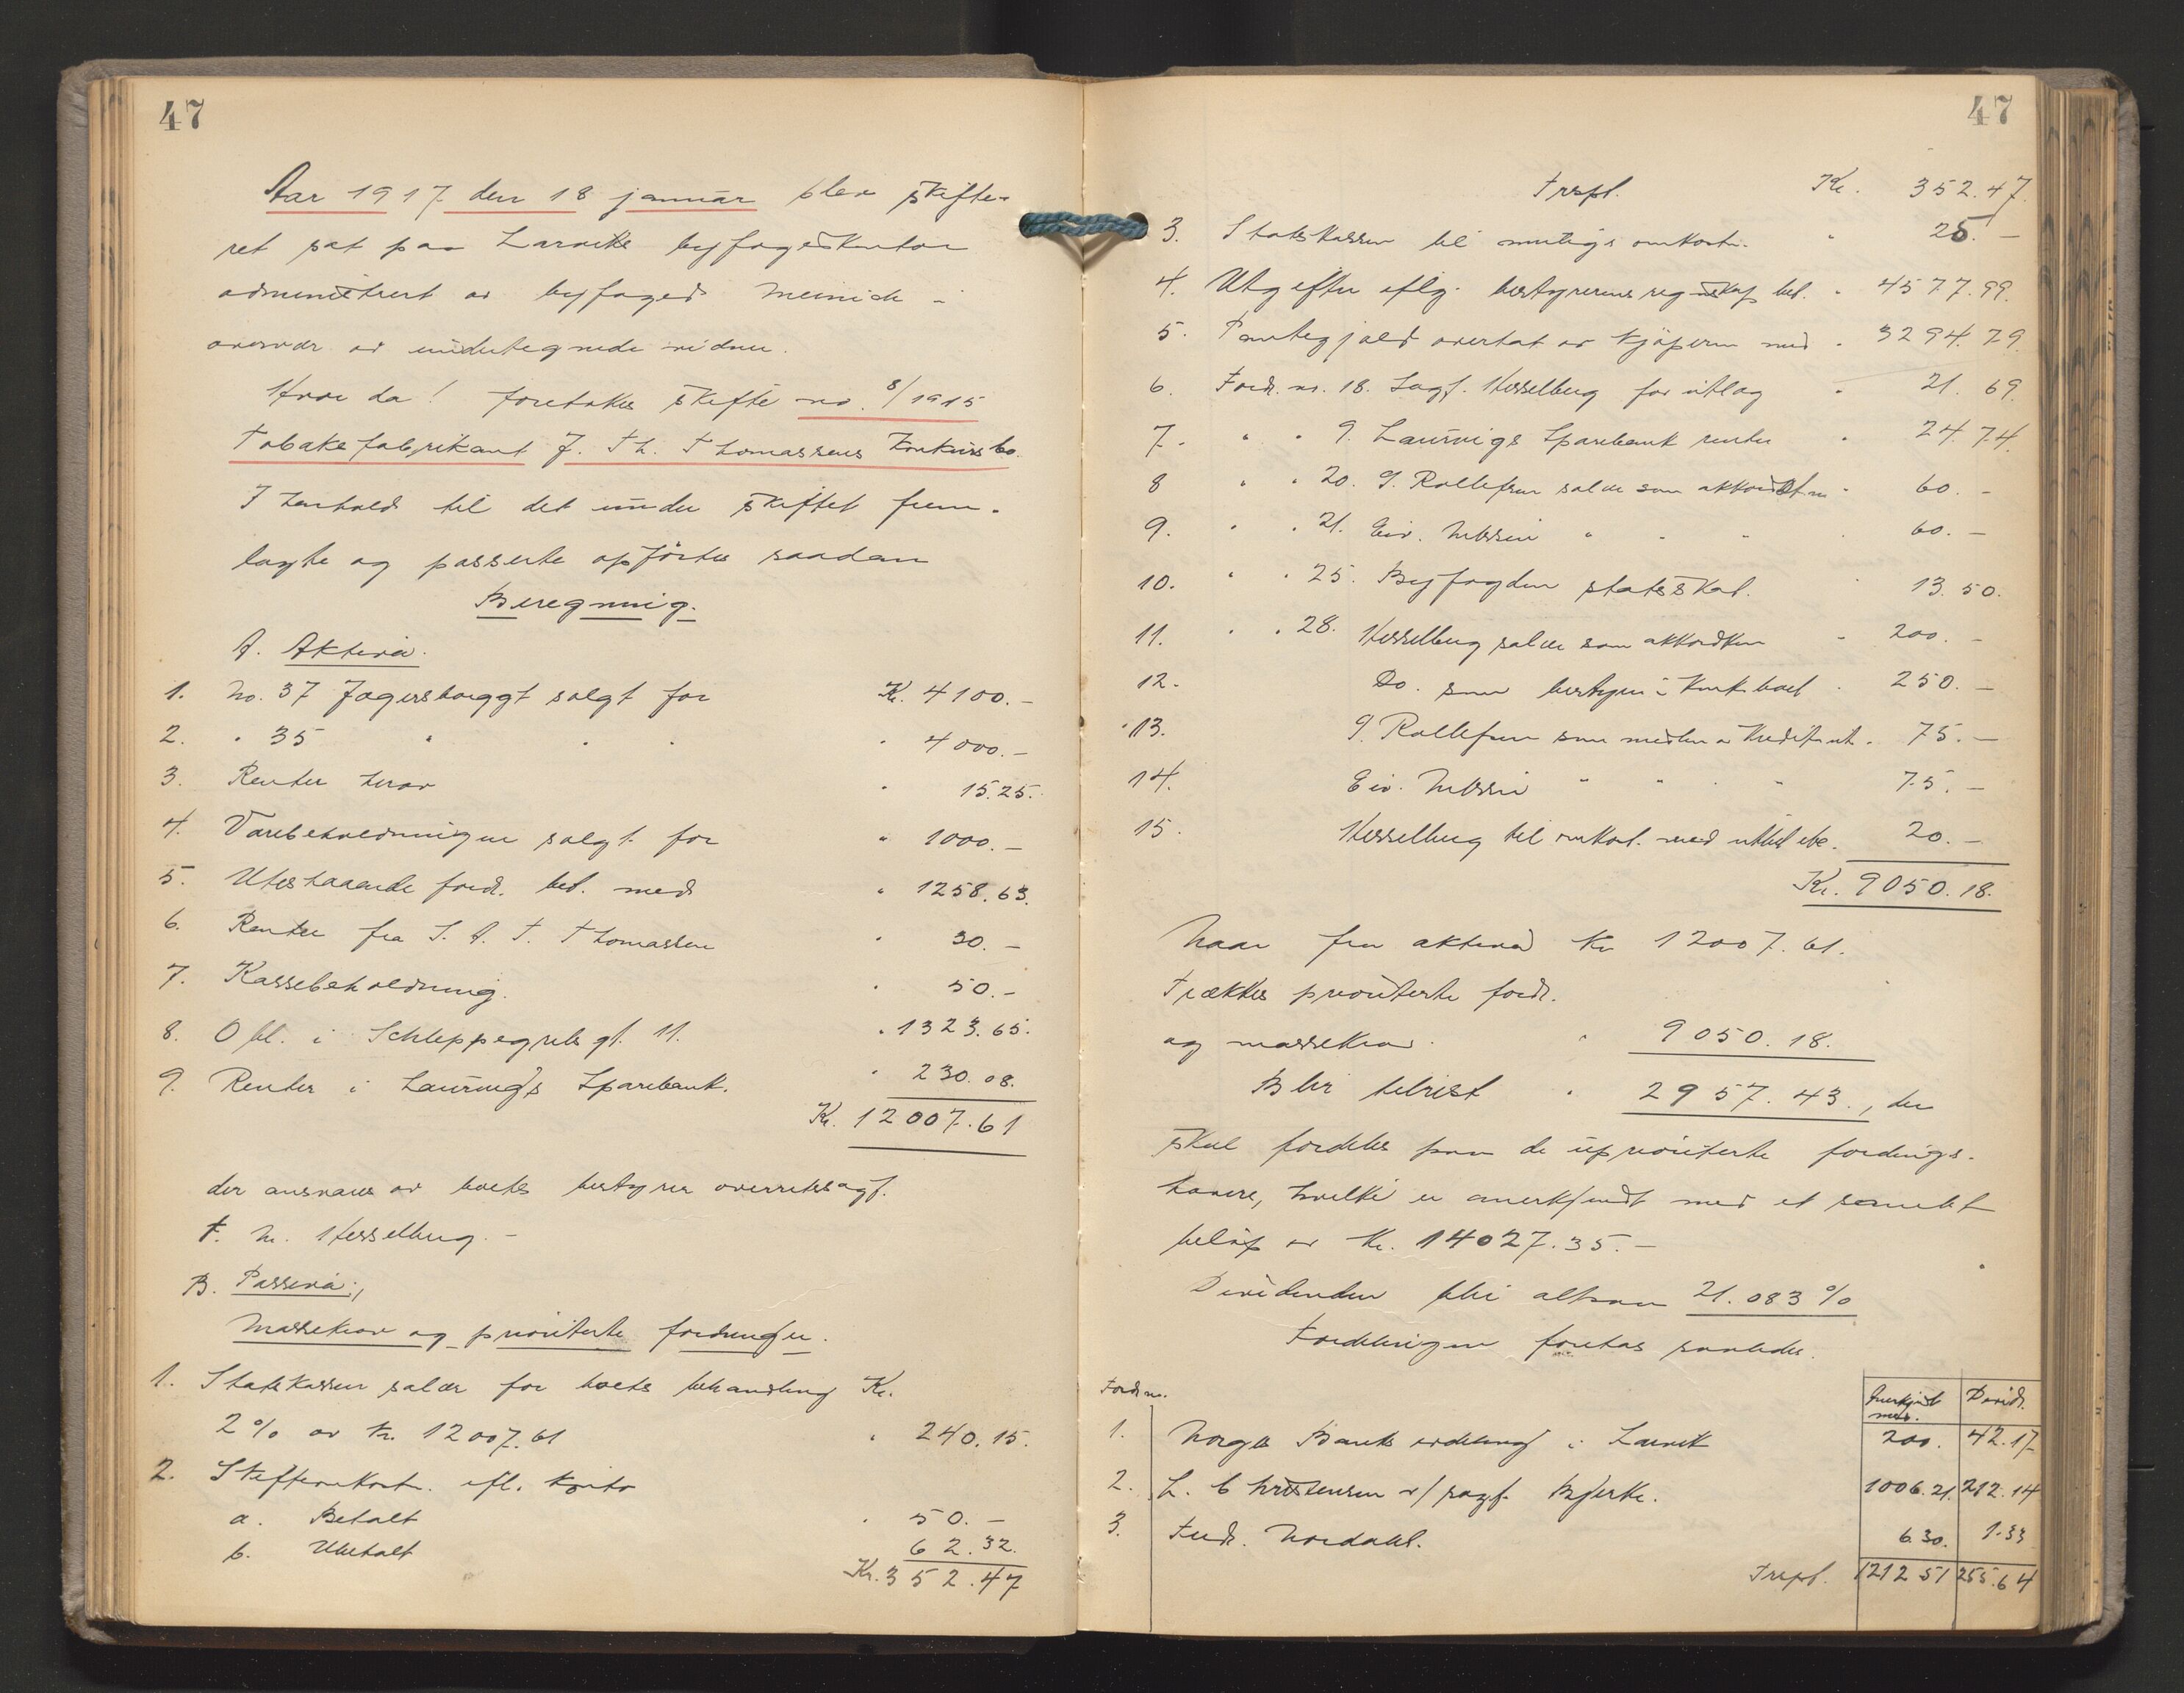 47
Aar 1917 den 18 januar blev skifte-
ret sat paa Larviks byfogedkontor
administrert av byfoged Meinich i
overvær av undertegnede vidner.
Hvor da! foretokes skifte no. 8/1915
Tobaksfabrikant J. Th. Thomassens konkursbo.
I henhold til det under skiftet frem-
lagte og passerte opførtes saadan
Beregning.
A. Aktiva.
1. No. 37 Jegersborggt solgt for Kr. 4100.-
2. " 35 " " " " 4000.-
3. Renter herav " 15.25.
4. Varebeholdningen solgt for " 1000.-
5. Utestaaende fordr. bet. med " 1258.63.
6. Renter fra S. A. T. Thomassen " 30.-
7. Kassebeholdning. " 50.-
8. Obl. i Schleppegrels gt. 11. " 1323.65.
9. Renter i Laurvigs Sparebank. " 230.08.
Kr. 12007.61
der ansvares av boets bestyrer overretssagf.
F. M. Hesselberg.-
B. Passiva:,
Massekrav og prioriterte fordringer.
1. Statskassen salær for boets behandling Kr.
2% av kr. 12007.61 " 240.15.
2. Skifteomkostn. efl. konto
a. Betalt " 50.-
b. Ubetalt 62.32.
Kr. 352.47
47
Trspt. Kr. 352.47.
3. Statskassen til mulige omkostn. " 25.-
4. Utgifter eflg. bestyrerens regnskap bet. " 4577.99.
5. Pantegjæld overtat av kjøperen med " 3294.79.
6. Fordr. no. 18. Sagf. Hesselberg for utlæg " 21.69.
7. " " 9. Laurvigs Sparebank renter " 24.74.
8 " " 20. G. Rollefsen salær som akkordt.m. " 60.-
9. " " 21. Eiv. Nilssen " " " 60.-
10. " " 25. Byfogden statsskat. " 13.50.
11. " " 28. Hesselberg salær som akkordtm " 200.-
12. Do. som bestyrer i konk.boet " 250.-
13. G. Rollefsen som medlem av kreditorutv. " 75.-
14. Eiv. Nilssen " " " " 75.-
15. Hesselberg til omkost. med utlod. etc. 20.-
Kr. 9050.18.
Naar fra aktiva Kr 12007.61.
trækkes prioriterte fordr.
og massekrav. " 9050.18.
Blir tilrest " 2957.43., der
skal fordeles paa de uprioriterte fordrings-
havere, hvilke er anerkjendt med et samlet
beløp av Kr. 14027.35.-
Dividenden blir altsaa 21.083%
Fordelingen foretas saaledes.
Fordr no. Anerkjendt med. Divid.
1. Norges Banks avdeling i Larvik 200. 42.17
2. L. Christensen v/ sagf. Bjerke. 1006.21. 212.14
3. Fredr. Nordahl. 6.30. 1.33
Trspt. 1212 51 255.64